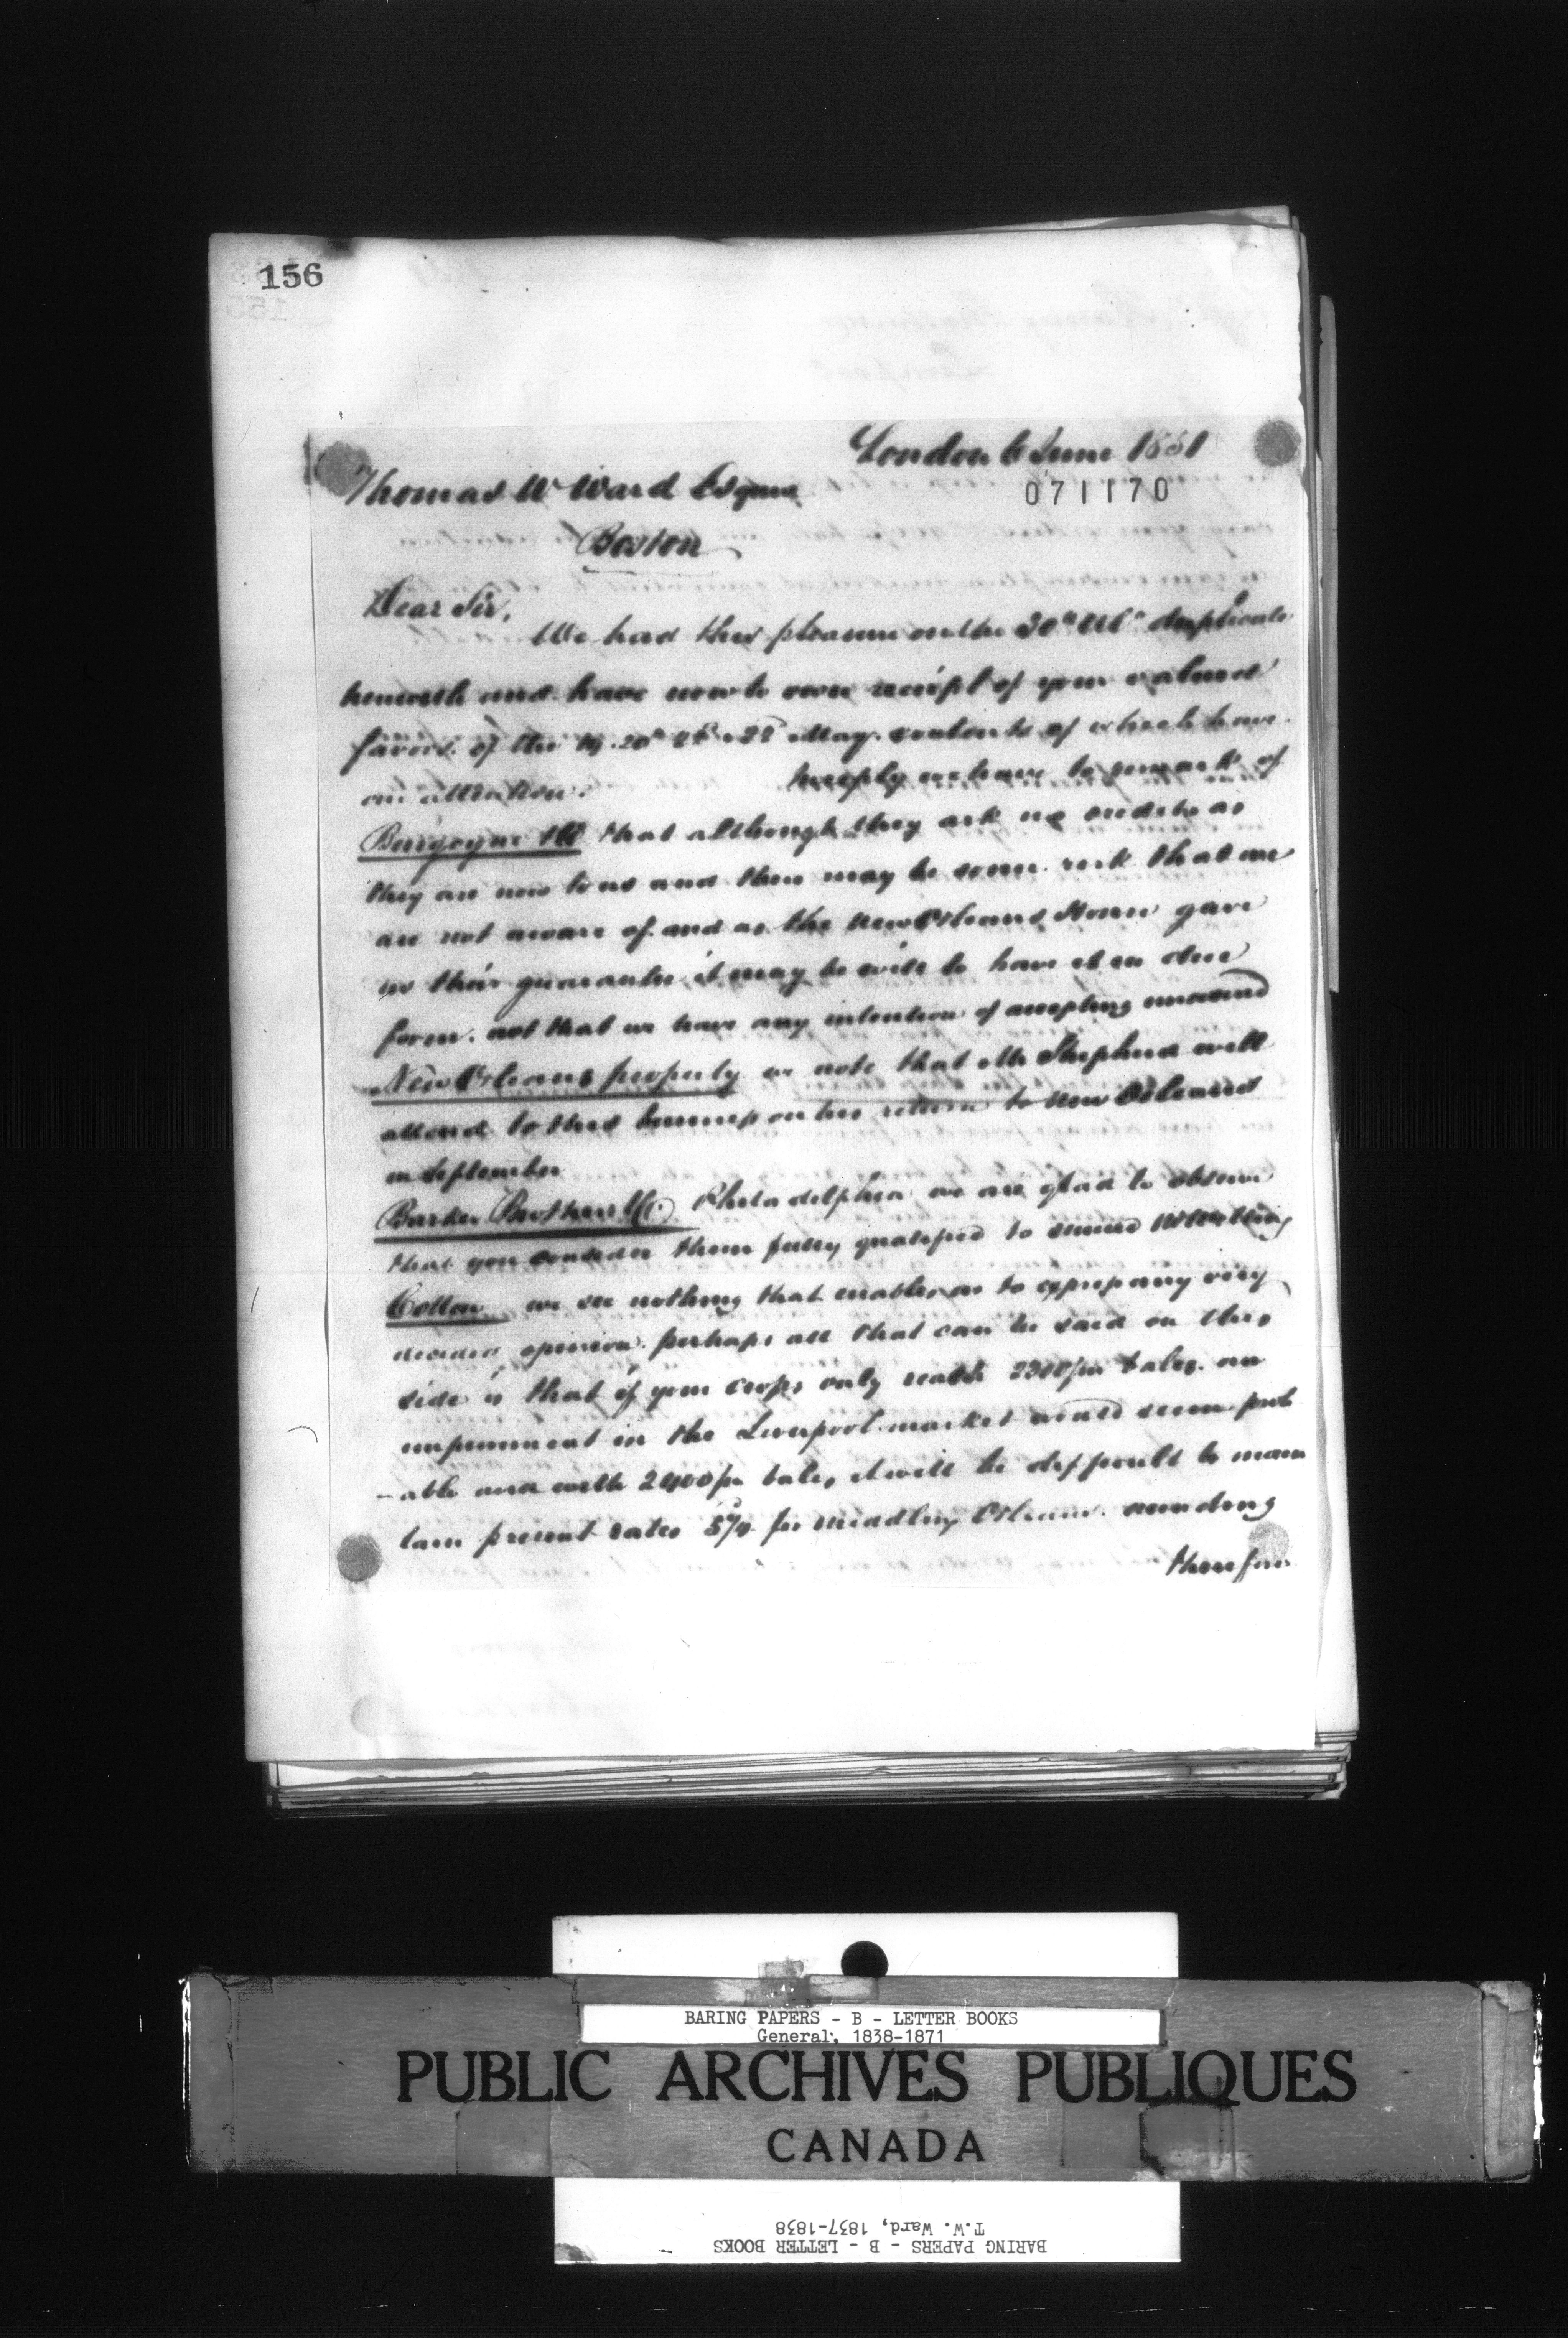 156
London 6 June 1851
Thomas W Ward Esquire
071170
Boston
Dear Sir,
We had this pleasure on the 30th Ulto duplicate
herewith and have now to own receipt of your valued
favors of the 19. 20th 21st & 22 May contents of which have
our attention. In reply we have to remark of
Burgoyne & Co that although they ask no credits as
they are new to us and there may be some risk that we
are not aware of and as the New Orleans House gave
us their guarantee it may be well to have it in due
form. not that we have any intention of accepting uncovered
New Orleans property we note that Mr Shepherd will
attend to this business on his return to New Orleans
in September
Barker Brothers & Co. Philadelphia we are glad to observe
that you consider them fully qualified to
Cotton we see nothing that enables us to express any very
decided opinion. perhaps all that can be said on this
side is that if your crops only reach 2300/m bales. an
improvement in the Liverpool market would seem prob
-able and with 2400/m bales it will be difficult to main
tain present rates for middling Orleans.
therefore
BARING PAPERS - B - LETTER BOOKS
General, 1838-1871
PUBLIC ARCHIVES PUBLIQUES
CANADA
T.W. Ward, 1837-1838
BARING PAPERS - B - LETTER BOOKS